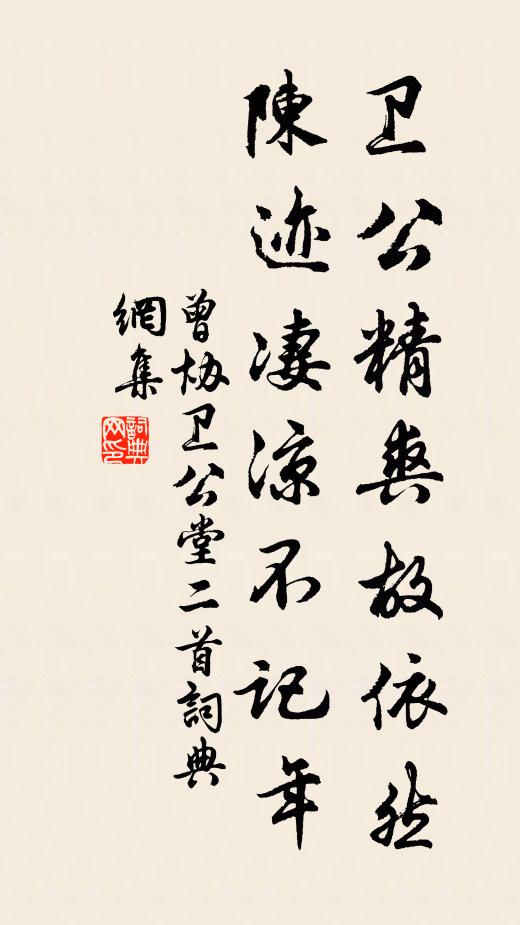 卫公精爽故依然
陳迹凄凉不记年
曾协卫公堂二首詞典
網集
詞典
网印